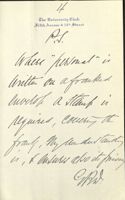 The University Club
Fifth Avenue & 54th Street
P.S.
Where "personal" is
written on a franked
envelope a stamp is
required, covering the
frank. My understanding
is, & ensures also its privacy